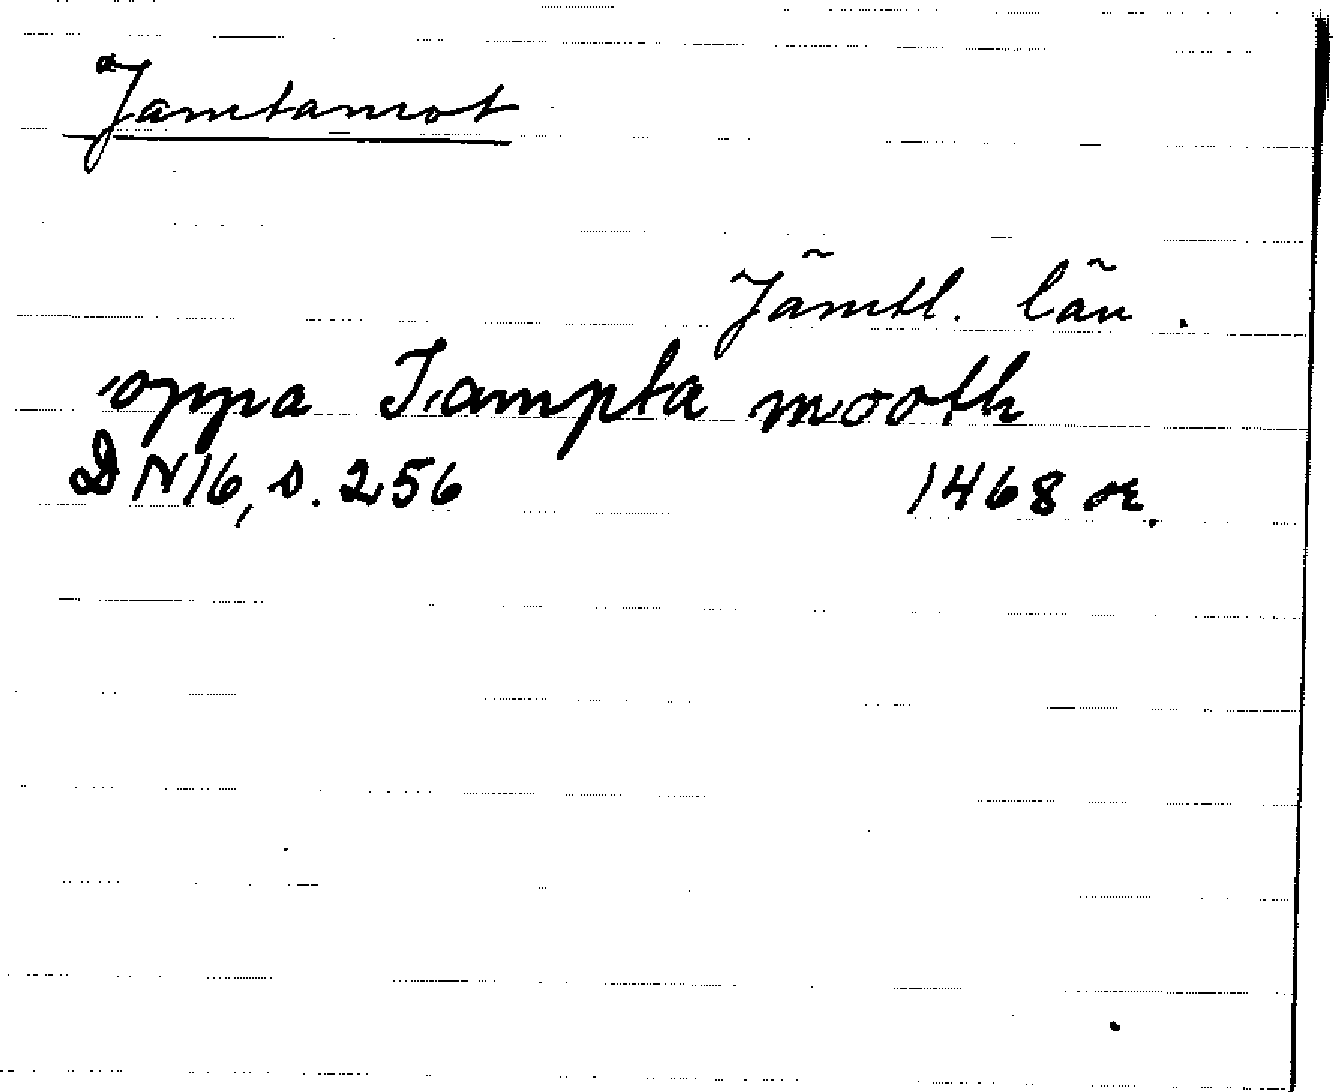 Jamtamot
Jämtl. län.
oppa Iampta mooth
DN16, s. 256 1468 or.